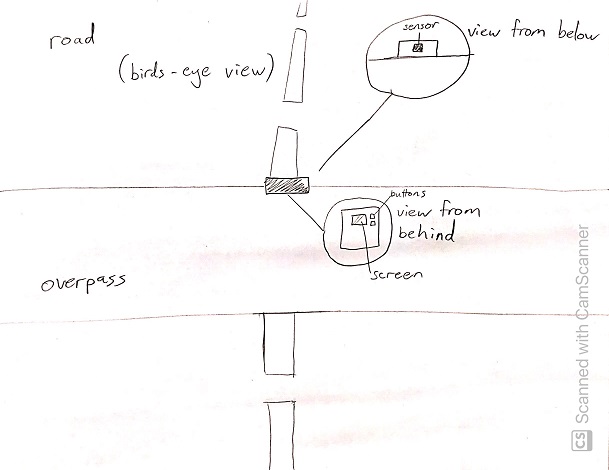 road
(birds-eye view)
sensor
view from below
buttons
view from
behind
screen
overpass
CS Scanned with CamScanner